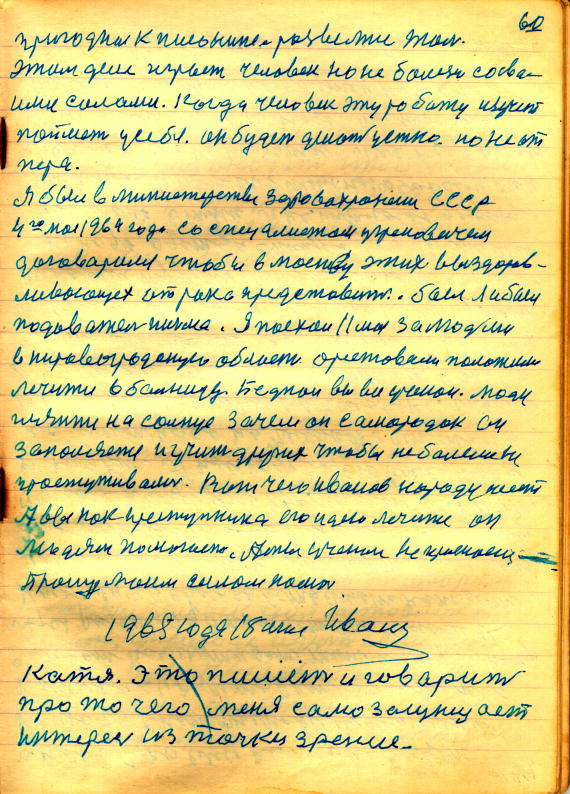 60
пригодном к писыните. развести этом.
Этом деле играет человек но не болезн со сва-
ими силами. Когда человек эту роботу изучит
поймет у себя. он будет делать устно. но не от
пера.
Я был в министерстве Здровахронении СССР
4го мая 1964 года со специалистом
договарился чтобы в москву этих выздоров-
ливающех от рака представить. был Либыи
подователи писма. Я поехал 11 мая за людьми
в кировоградскую область орестовали положили
лечити в больницу. Бедные вы вы ученои. люди
глядити на солнце зачем он самородок он
закаляется и учит других чтобы не болели не
простуживались. Вот чего Иванов народу несет
А вы как преступника его надо лечити он
людям помогает. А вы учении не признаети
Прошу моим силам помоч
1965 года 18 мая Иванов
Катя. Это пишет и говарит
про то чего меня само защищает
интерес из точки зрение.